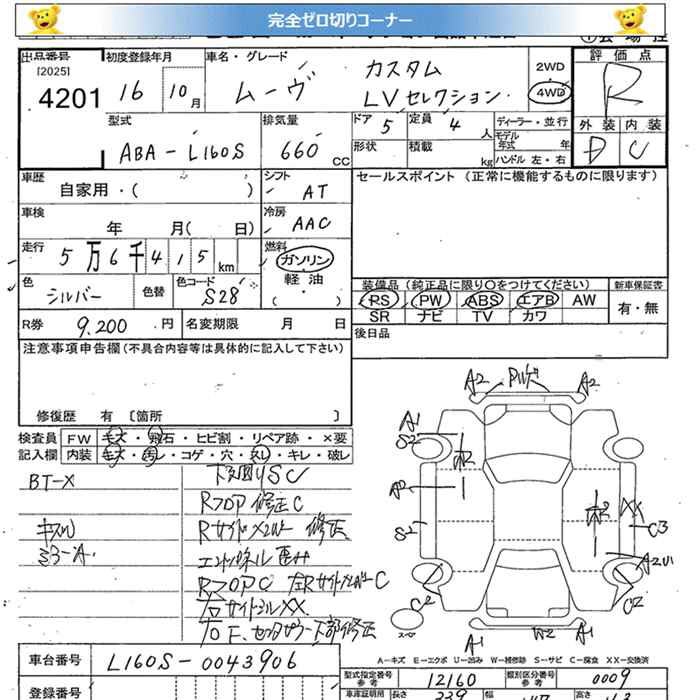 完全ゼロ切りコーナー
出品番号
[2025]
4201
初度登録年月
16 10月
車名・グレード
ムーヴ カスタム
LVセレクション
2WD
4WD
評価点
R
外装 内装
D C
型式
ABA-L160S
排気量
660 cc
ドア 5
形状
定員 4 人
積載 kg
ディーラー・並行
モデル年式 年
ハンドル 左・右
車歴
自家用・( )
シフト
AT
セールスポイント (正常に機能するものに限ります)
車検
年 月( 日)
冷房
AAC
走行
5万6千415km
燃料
ガソリン
軽油
( )
色
シルバー
色替
色コード
S28
装備品 (純正品に限り○をつけてください)
RS PW ABS エアB AW
SR ナビ TV カワ
新車保証書
有・無
R券 9,200.円
名変期限 月 日
後日品
注意事項申告欄(不具合内容等は具体的に記入して下さい)
修復歴 有 〔箇所 〕
検査員 FW キズ・飛石・ヒビ割・リペア跡・×要
記入欄 内装 キズ・汚レ・コゲ・穴・スレ・キレ・破レ
BT-X
下回りSC
RフロP修正C
キズW
Rサイドメンバー 修正
ミラーA.
RフロPC 左Rサイドメンバー C
右サイドシルXX.
右F.センタピラー下部修正
A2 A2
A1
S2
A2
S2
C2
XX
C3
A2U1
C2
スペア
A1 W2 A1
A-キズ E-エクボ U-凹み W-補修跡 S-サビ C-腐食 XX-交換済
車台番号 L160S-0043906
型式指定番号
参考
12160
類別区分番号
参考
0009
登録番号
車庫証明用
長さ
339
幅
147
高さ